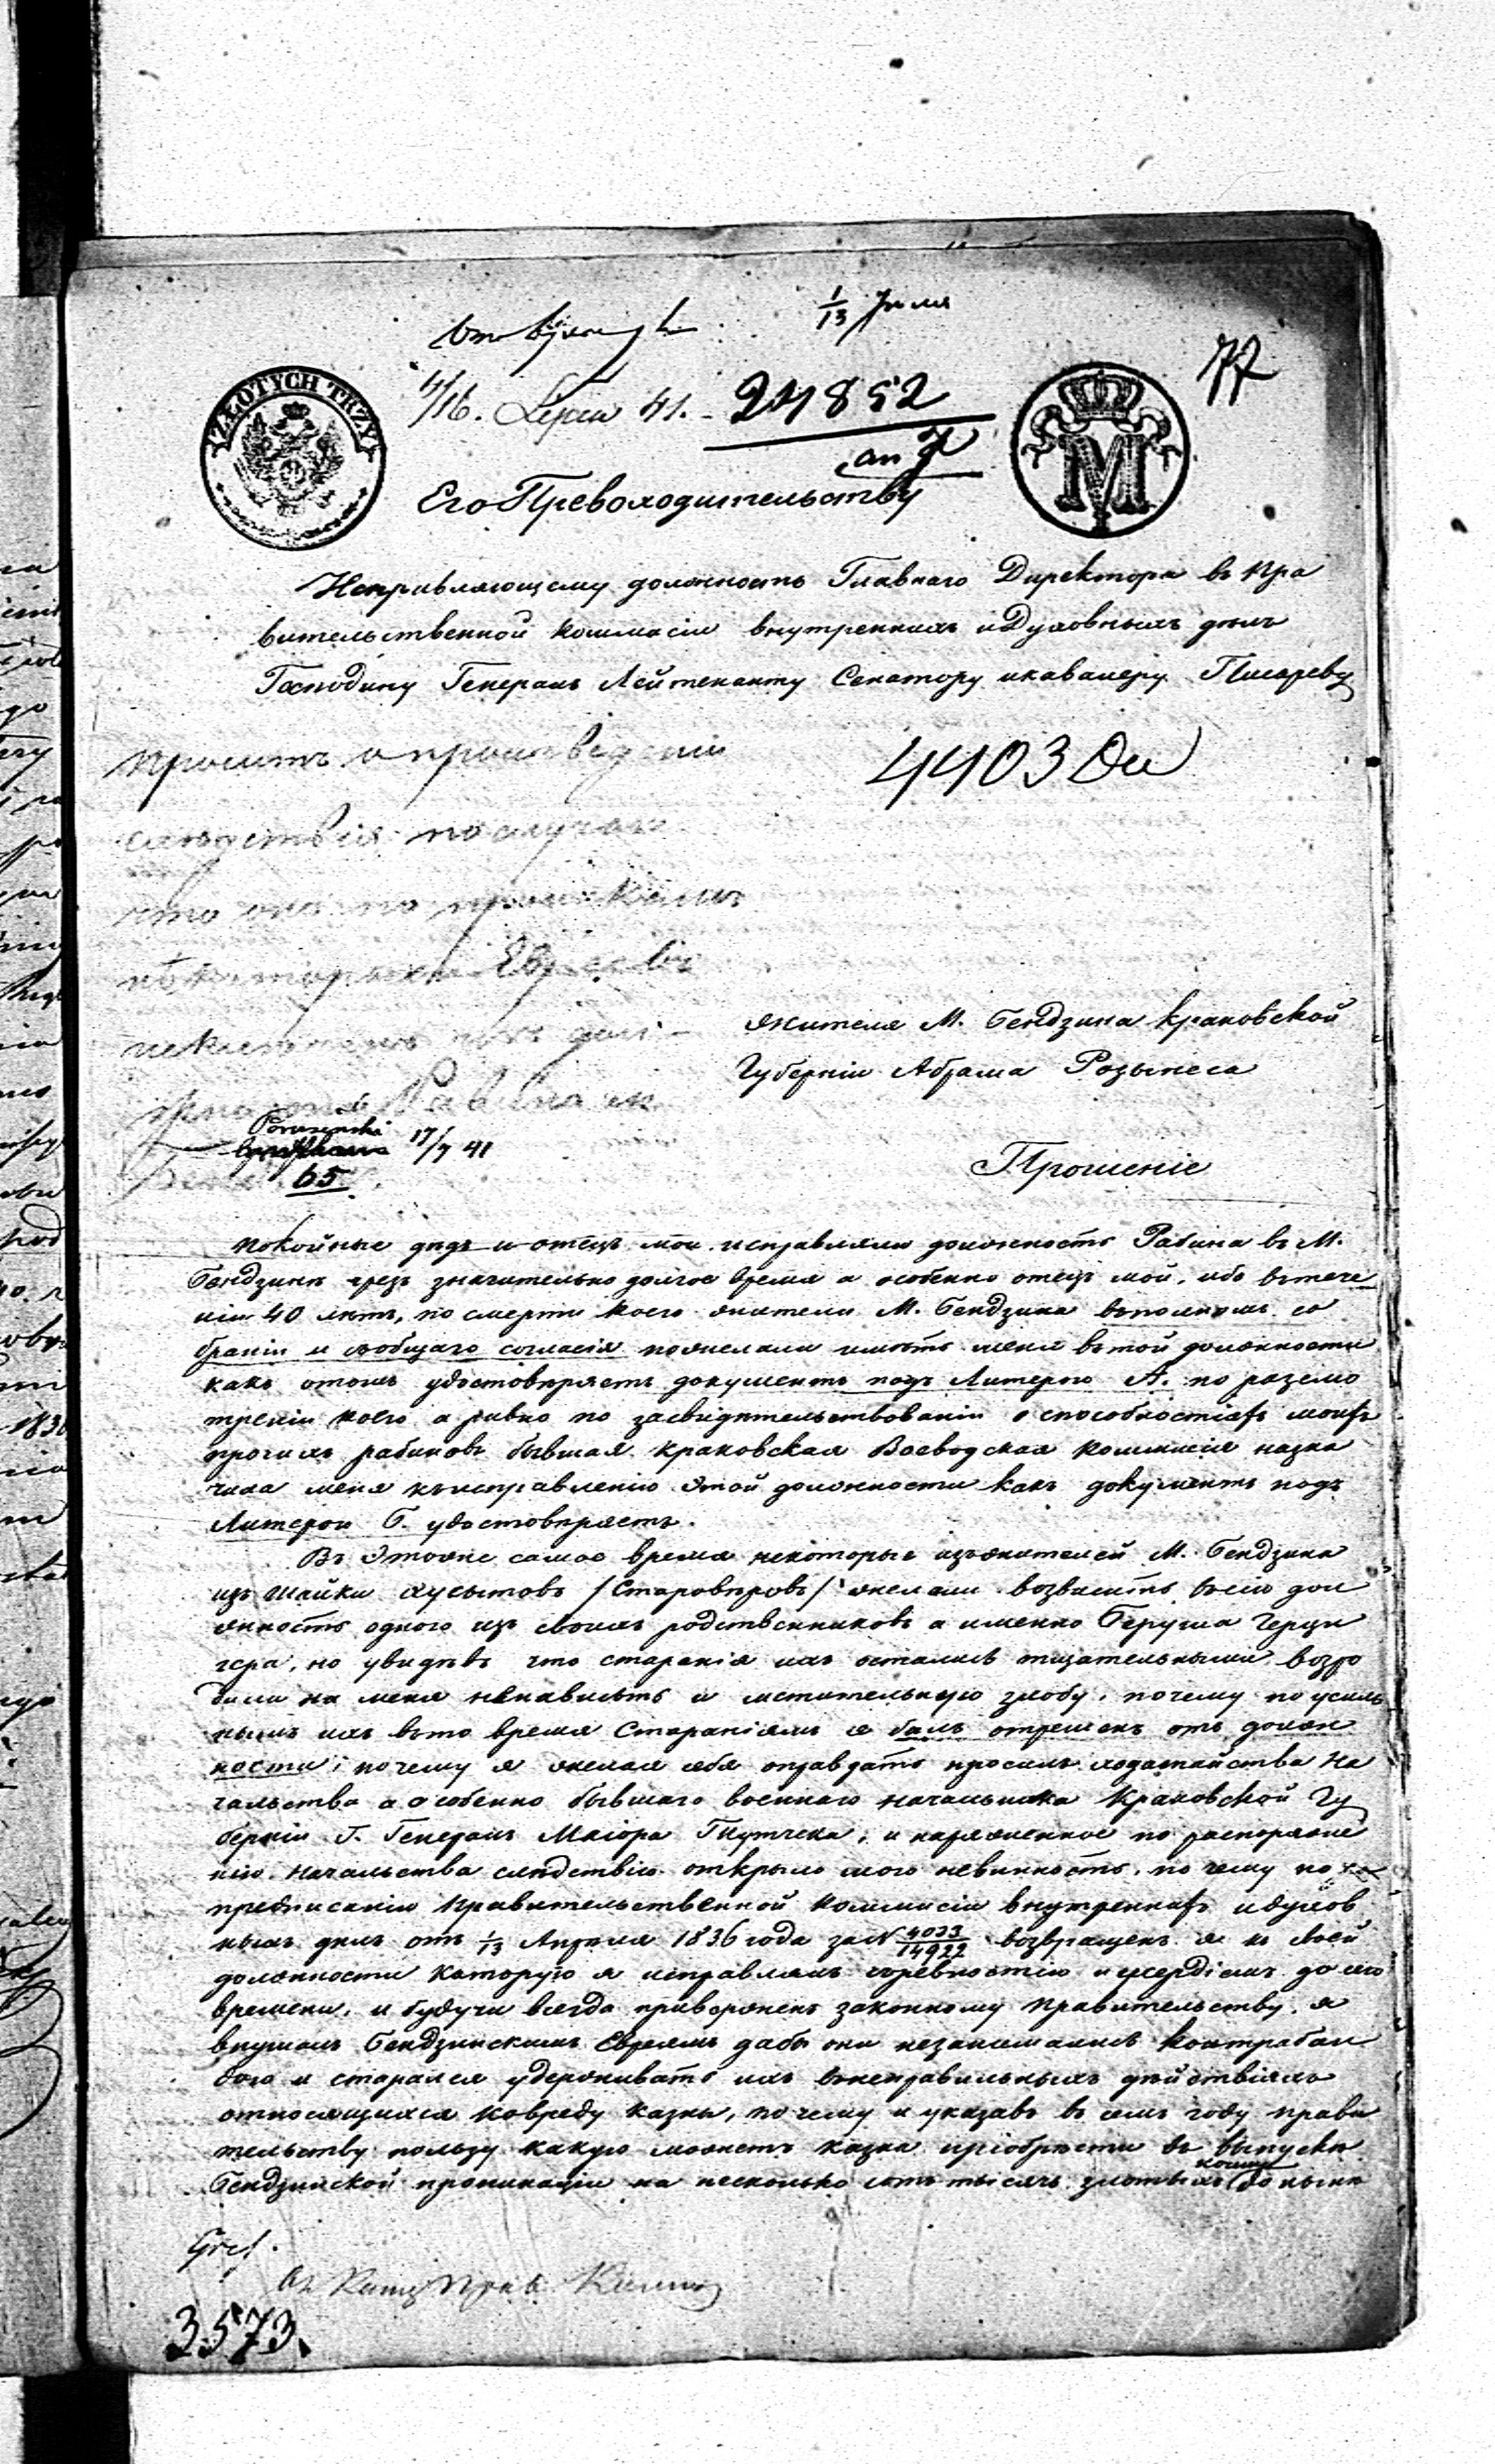 1/13 Іюля
77
ZŁOTYCH TRZY
4/16. Lipca 41. 24852
M
Его Превосходительству
Исправляющему должность Главнаго Директора въ Пра
вительственной коммисіи внутреннихъ и Духовныхъ дѣлъ
Господину Генералъ Лейтенанту Сенатору и кавалеру Писареву
проситъ о произведеніи
4403
слѣдствія по случаю
что онъ по проискамъ
нѣкоторыхъ Евреевъ
жителя М. Бендзина Краковской
Губерніи Абрама Розынеса
17/7 41
65
Прошеніе
Покойные дѣдъ и отецъ мои исправляли должность Рабина въ М.
Бендзинѣ чрезъ значительно долгое время а особенно отецъ мой, ибо втече
ніи 40 лѣтъ, по смерти коего жители М. Бендзина вполномъ со
браніи и собщаго согласія пожелали имѣть меня втой должности
какъ отомъ удостовѣряетъ документъ подъ Литерою А. по разсмо
треніи коего а равно по засвидѣтельствованіи о способностіяхъ моихъ
прочихъ рабиновъ бывшая Краковская Воеводская коммисія назна
чила меня къисправленію этой должности какъ документъ подъ
Литерою Б. удостовѣряетъ.
Въ этоже самое время некоторые изъжителей М. Бендзина
изъ шайки хусытовъ /Старовѣровъ/ желали возвысить всію дол
жность одного изъ своихъ родственниковъ а именно Беруша Герци
гера, но увидѣвъ что старанія ихъ остались тщательными возро
дили на меня ненависть и мстительную злобу, почему по усиль
нымъ ихъ вьто время Стараніямъ я балъ отрешенъ отъ долж
ности; почему я желая себя оправдать просилъ ходатайства На
чальства а особенно бывшаго военнаго начальника Краковской Гу
берніи Г. Генералъ Маіора Гнутчека, и наряженное по распоряже
нію начальства слѣдствію открыло мою невинность, по чему по
предписанію Правительственной коммисіи внутреннихъ идухов
ныхъ дѣлъ отъ 1/13 Апреля 1836 года за№ 4033/14922 возвращенъ я къ своей
должности каторую я исправлялъ съревностію и усердіемъ до сего
времени, и будучи всегда приверженъ законному Правительству, я
внушалъ Бендзинскимъ Евреямъ дабы они незанимались контрабан
дою и старался удерживать ихъ внеправильныхъ дѣйствіяхъ
относящихся ковреду казны, по чему и указавъ в семъ году прави
тельству пользу какую можетъ казна пріобрѣсти въ выпускѣ
Бендзинской пропинаціи на несколько сотъ тысячъ злотыхъ (до нынѣ
3573.